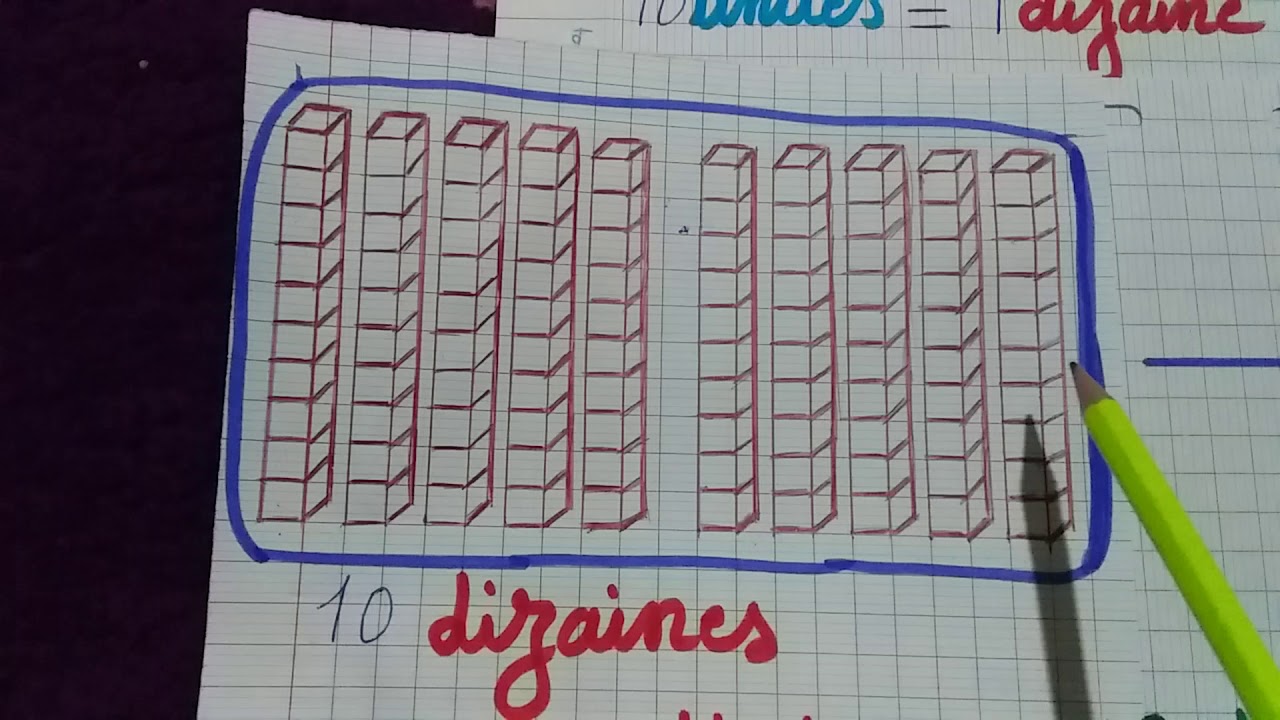 10 unités = 1 dizaine
10 dizaines